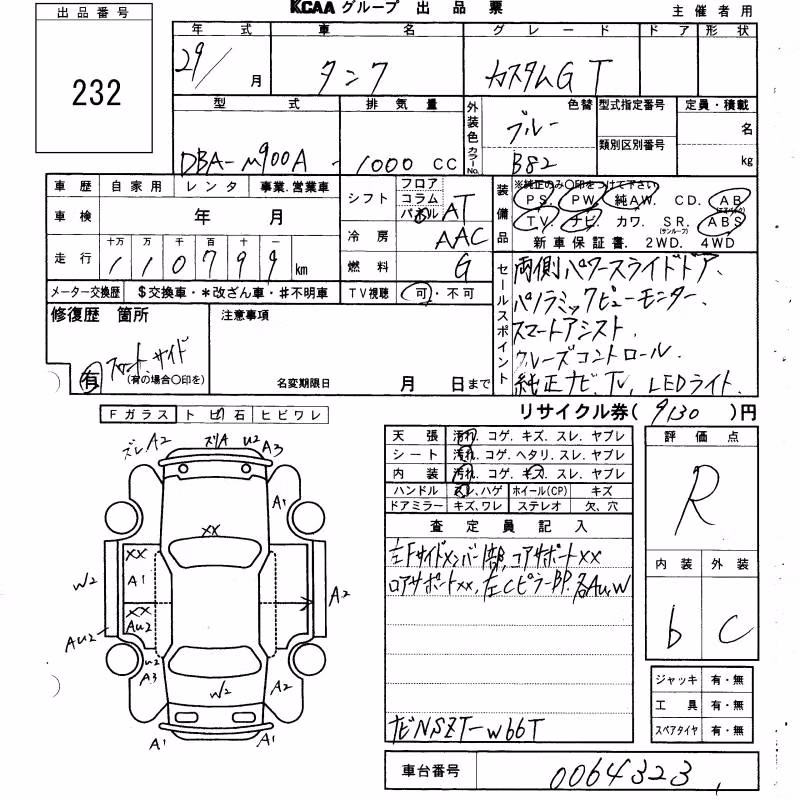 出品番号
232
KCAAグループ 出品票
主催者用
年式 車名 グレード ドア 形状
29/ 月 タンク カスタムG T
型式 排気量 外装色 色替 型式指定番号 定員・積載
ブルー 名
カラーNo. 類別区別番号
DBA-M900A - 1000 CC B82 kg
車歴 自家用 レンタ 事業.営業車
シフト フロア コラム パネル AT
装備品 ※純正のみ〇印をつけて下さい
PS. PW. 純AW. CD. AB
車検 年 月
TV. ナビ. カワ. SR.(サンルーフ) ABS
冷房 AAC
新車保証書. 2WD. 4WD
走行 十万 万 千 百 十 一
110799 km
燃料 G
メーター交換歴 $交換車・*改ざん車・#不明車
TV視聴 可・不可
セールスポイント
両側パワースライドドア、
パノラミックビューモニター、
スマートアシスト.
クルーズコントロール.
純正ナビ、TV, LEDライト.
修復歴 箇所 注意事項
フロント、サイド
有 (有の場合〇印を)
名変期限日 月 日まで
リサイクル券( 9130 )円
Fガラス トビ石 ヒビワレ
ズレ A2 スリA U2 A3
A1
XX
XX
A1
W2
A2
XX
AU2
AU2
U2
A3
W2
A2
A1 A1
天張 汚れ. コゲ. キズ. スレ. ヤブレ
シート 汚れ. コゲ. ヘタリ. スレ. ヤブレ
内装 汚れ. コゲ. キズ. スレ. ヤブレ
ハンドル スレ.ハゲ ホイール(CP) キズ
ドアミラー キズ.ワレ ステレオ 欠、穴
査定員記入
左Fサイドメンバー1部,コアサポートXX
ロアサポートXX,左CピラーBP.各AU,W
ナビNSZT-W66T
評価点
R
内装 外装
b C
ジャッキ 有・無
工具 有・無
スペアタイヤ 有・無
車台番号 0064323